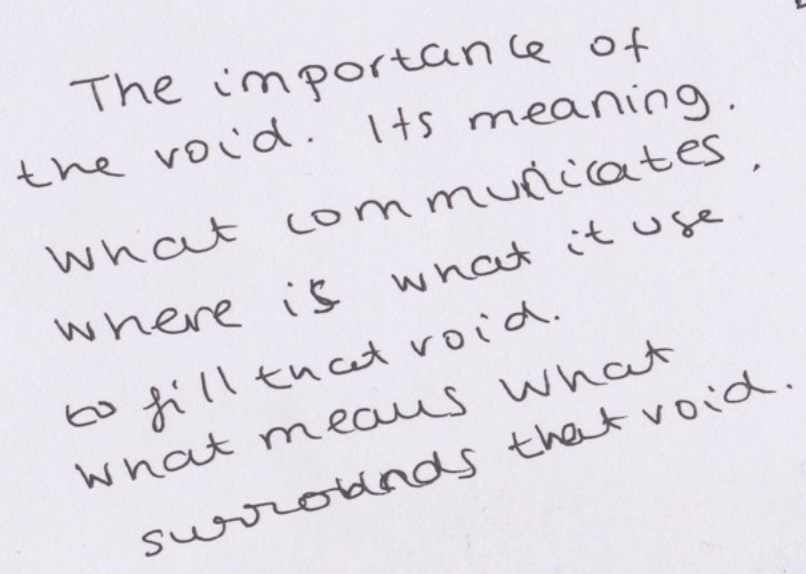 The importance of
the void. Its meaning.
What communicates.
where is what it use
to fill that void.
What means what
surrounds that void.